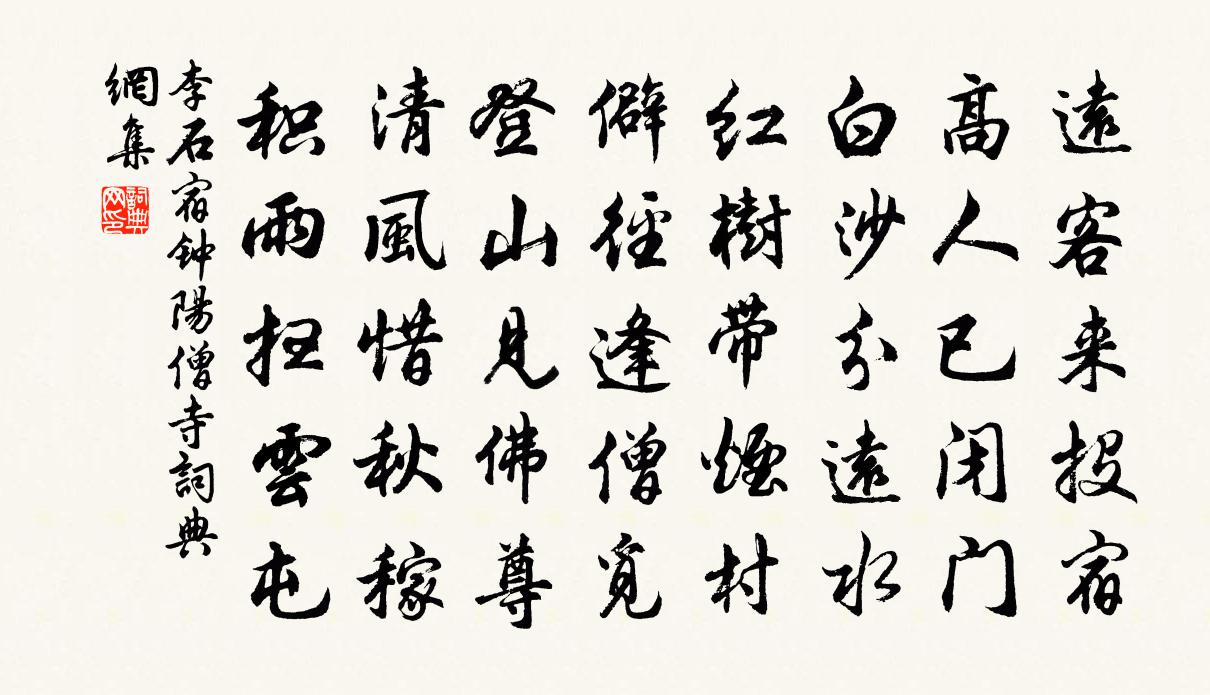 遠客来投宿
高人已闭门
白沙分遠水
红樹帶煙村
僻徑逢僧覓
登山見佛尊
清風惜秋稼
积雨扫雲屯
李石宿钟陽僧寺詞典
網集
詞典網印